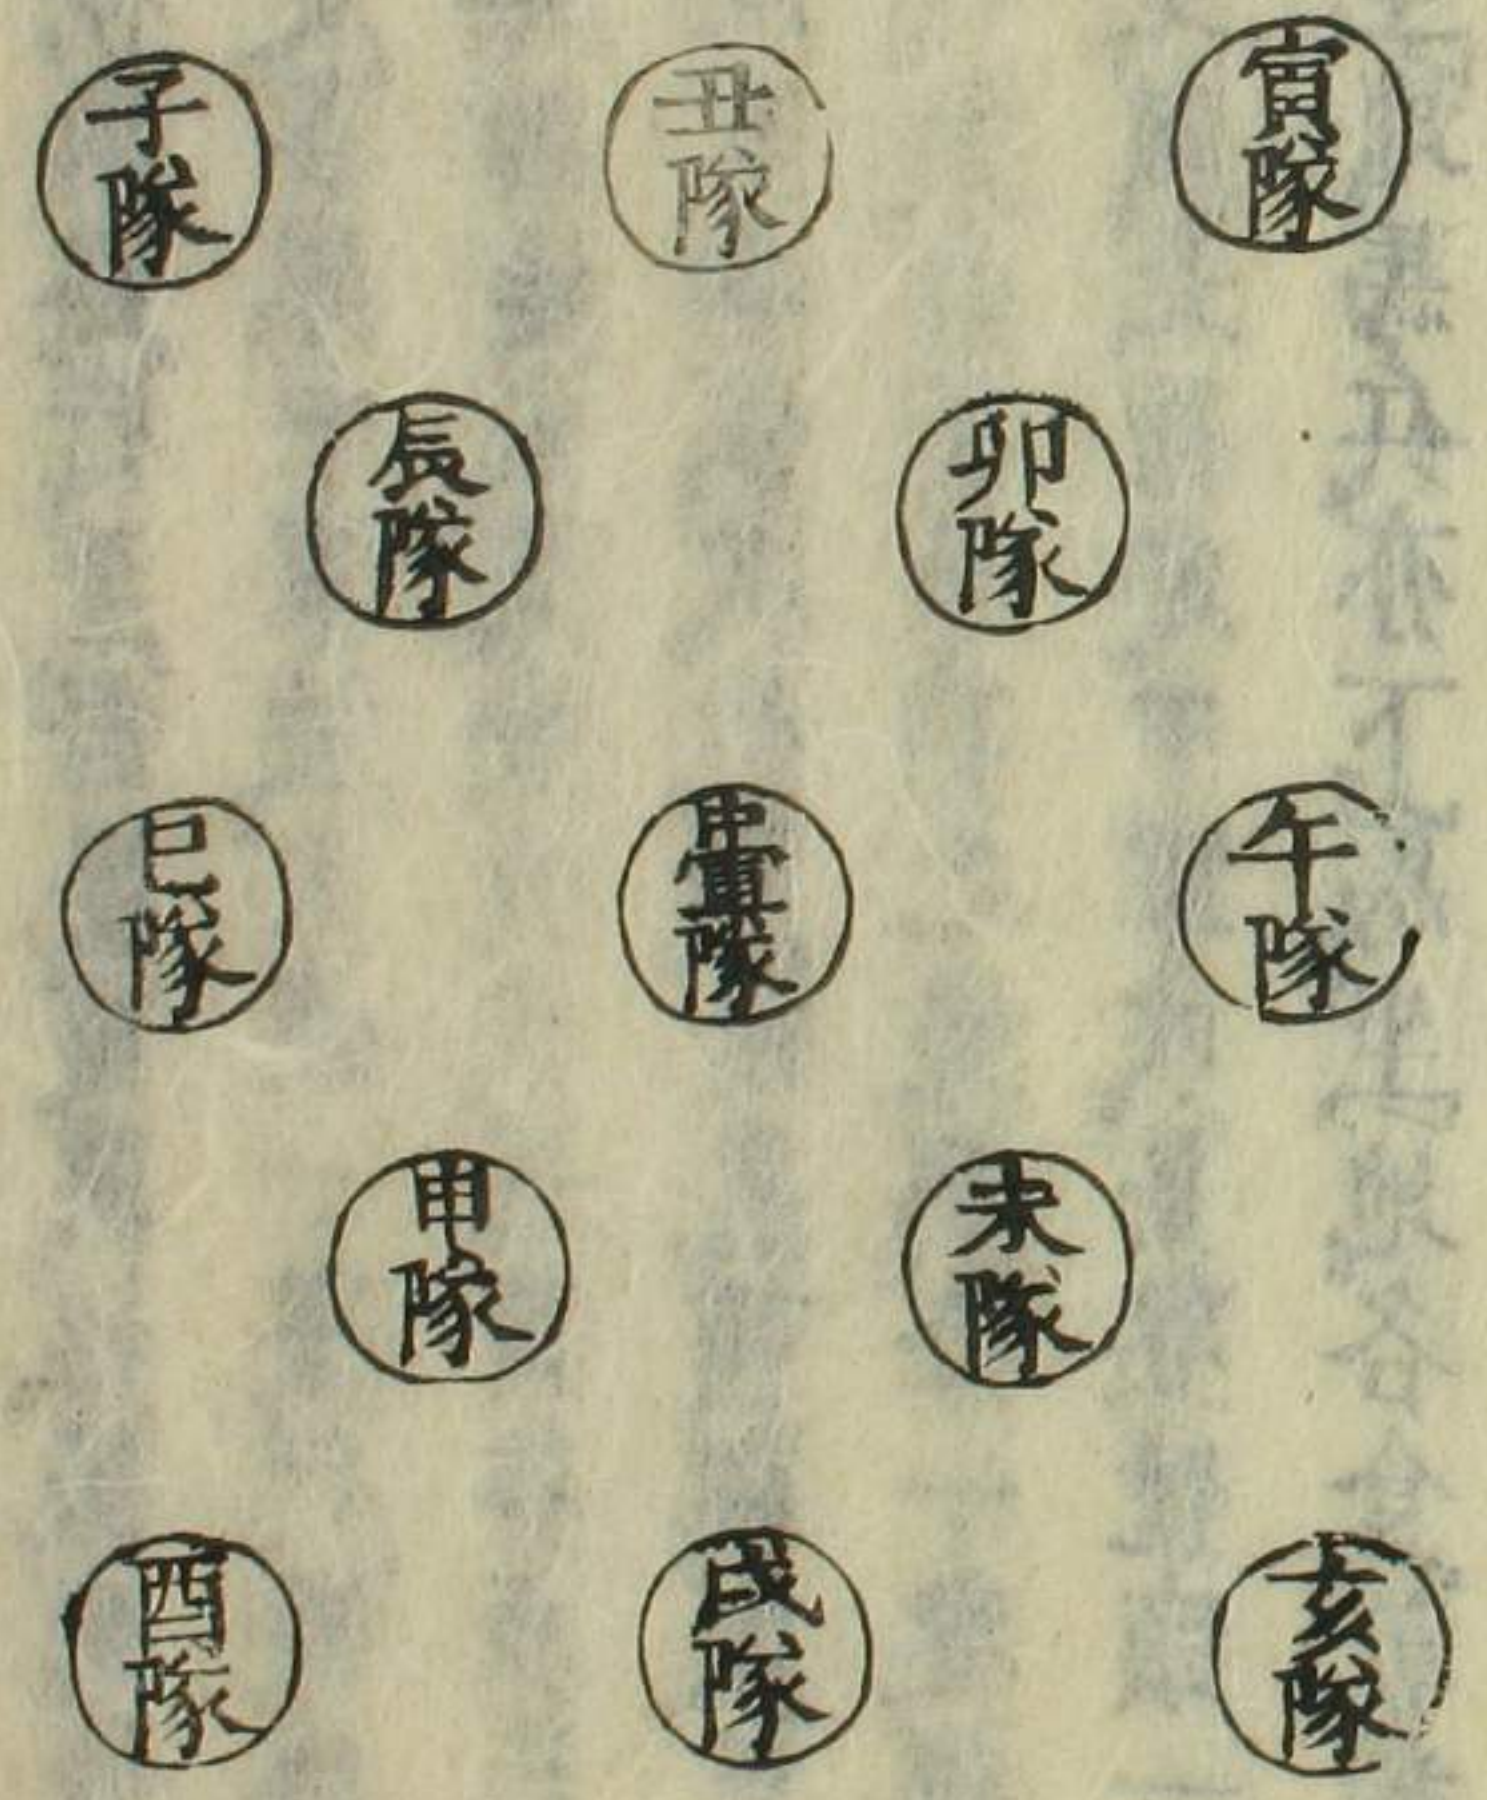 寅隊
丑隊
子隊
卯隊
辰隊
午隊
中軍隊
巳隊
未隊
申隊
亥隊
戌隊
酉隊